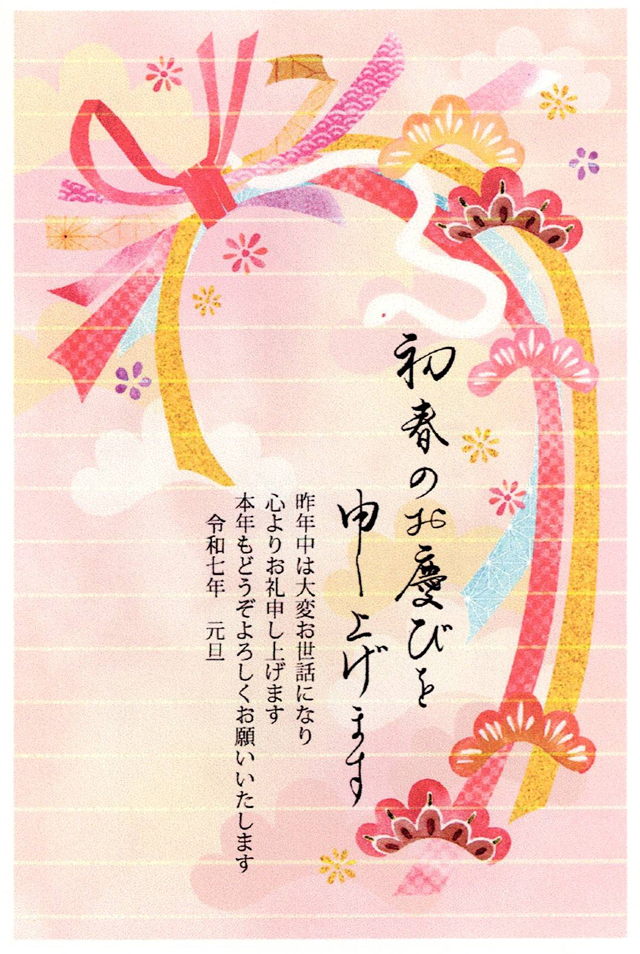 初春のお慶びを
申し上げます
昨年中は大変お世話になり
心よりお礼申し上げます
本年もどうぞよろしくお願いいたします
令和七年　元旦